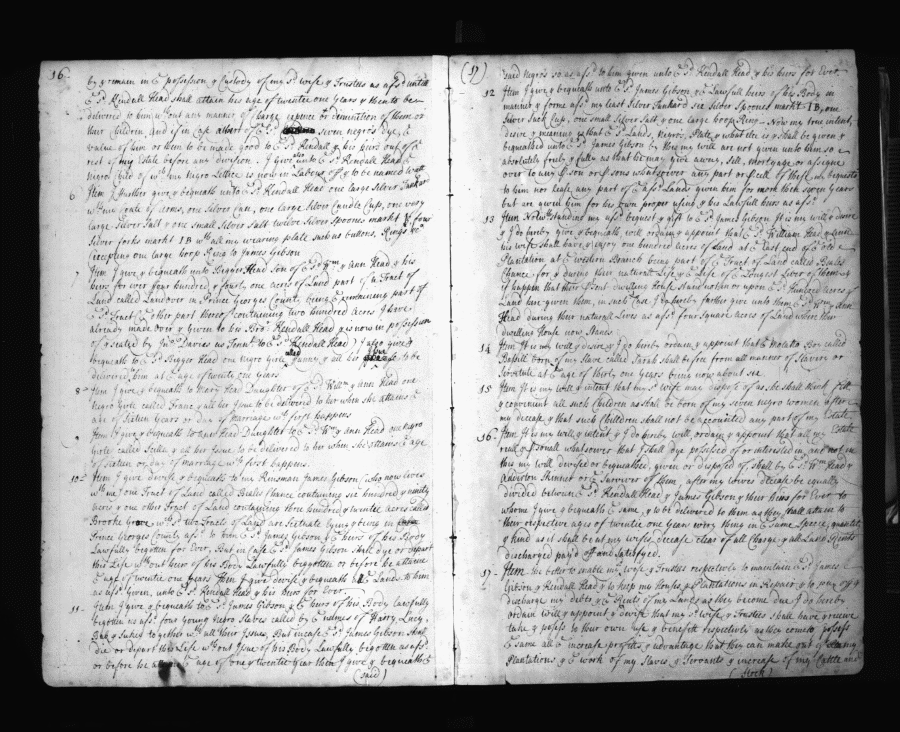 16
by & remain in ye possession & Custody of my sd wife & Trustees as afsd untill
ye sd Kendall Head shall attain his age of twentie one years & then to be
delivered to him wthout any manner of charge expence or demenition of them or
their Children and if in Case all or any of ye sd seven negro's dye, ye
value of him or them to be made good to ye sd Kendall & his heirs out of ye
rest of my Estate before any division. I give also unto ye sd Kendall Head ye
negro Child of wch one negro Lettice is now in Labour of & to be named Watt
6 Item I further give & bequeath unto ye sd Kendall Head one large Silver Tankard
wth my Coate of Arms, one Silver Cup, one large Silver Caudle Cup, one very
large Silver Salt & one small Silver Salt twelve Silver Spoones markt & four
Silver forks markt IB wth all my wearing plate such as buttons, Rings &c
Excepting one large hoop Ring to James Gibson
7 Item I give & bequeath unto Bigger Head Son of ye sd Wm & Ann Head & his
heirs for ever four hundred & fourty one acres of Land part of a Tract of
Land called Landover in Prince Georges County, being ye remaineing part of
ye sd Tract ye other part thereof containing two hundred acres I have
already made over & given to his Bror Kendall Head & is now in possession
of & seated by Jno Davies as Tennt to ye sd Kendall Head I also give &
bequeath to ye sd Bigger Head one negro Girle called Fanny & all her Issue to be
delivered him at ye age of twentie one years
8 Item I give & bequeath to Mary Head Daughter of ye sd Willm & Ann Head one
Negro Girle called Franc & all her Issue to be delivered to her when she attains ye
age of Sixteen years or day of marriage wch first happens
9 Item I give & bequeath to Ann Head Daughter to ye sd Wm & Ann Head one negro
Girle called & all her Issue to be delivered to her when she attains ye age
of Sixteen or day of marriage wch first happens
10 Item I give devise & bequeath to my Kinsman James Gibson who now lives
wth me one Tract of Land called Beales Chance containing six hundred & ninety
acres & one other Tract of Land containing three hundred & twentie acres called
Brooke Grove wch sd two Tracts of Land are scituate lying & being in
Prince Georges County afsd to him ye sd James Gibson & ye heirs of his Body
Lawfully begotten for Ever, But in Case ye sd James Gibson shall dye or depart
this Life wthout heirs of his Body Lawfully begotten or before he attaine
ye age of twentie one years then I give devise & bequeath ye sd Lands to him
as afsd Given, unto ye sd Kendall Head & his heirs for Ever
11 Item I give & bequeath to ye sd James Gibson & ye heirs of his Body Lawfully
begotten as afsd four young Negro Slaves called by ye names of Harry, Lucy,
& Sukey together wth all their Issues, But in case ye sd James Gibson shall
die or depart this Life wthout Issue of his Body Lawfully begotten as afsd
or before he ye age of one & twentie year then I give & bequeath ye
(said)
(17)
said Negro's so as afsd to him given unto ye sd Kendall Head & his heirs for Ever
12 Item I give & bequeath unto ye sd James Gibson & ye Lawfull heirs of his Body in
manner & forme afsd my least Silver Tankard six Silver Spoones markt IB, one
Silver Sack Cup, one small Silver Salt & one large hoop Ring. Now my true intent,
desire & meaning is that ye sd Lands, Negro's, Plate & what else is & shall be given &
bequeathed unto ye sd James Gibson by this my will are not given unto him so
absolutely, freely & fully as that he may give away, sell, mortgage or assigne
over to any pson or psons whatsoever any part or pcell of these my bequests
to him nor lease any part of ye afsd Lands given him for more then seven years
but are given him for his own proper using & his Lawfull heirs as afsd
13 Item Notwthstanding my afsd bequest & gift to ye sd James Gibson It is my will & desire
& I do hereby give & bequeath will ordain & appoint that ye sd William Head & Ann
his wife shall have & enjoy one hundred acres of Land at ye East end of ye old
Plantation at ye western Branch being part of ye Tract of Land called Beales
Chance for & during their naturall Life & ye Life of ye Longest Liver of them & if
it happen that their psent dwelling house stand not in or upon ye sd hundred acres of
Land here given them, in such Case I do hereby further give unto them ye sd Wm & Ann
Head during their naturall Lives as afsd four square acres of Land where their
dwelling house now Stands
14 Item It is my will & desire & I do hereby ordain & appoint that ye Molatto Boy called
born of my Slave called Sarah shall be free from all manner of Slavery or
Servitude at ye age of thirty one years being now about six
15 Item It is my will & intent that my sd wife may dispose of as she shall think fitt
& convenient all such Children as shall be born of my seven negro women after
my decease & that such Children shall not be accounted any part of my Estate
16 Item It is my will & intent & I do hereby will, ordain & appoint that all my Estate
reall & psonall whatsoever that I shall dye possessed of or interested in, and not in
this my will devised or bequeathed, given or disposed of shall by ye sd Wm Head &
Skinner or ye Survivor of them, after my loves decease be equally
divided between ye sd Kendall Head & James Gibson & their heirs for Ever to
whome I give & bequeath ye same, & to be delivered to them as they shall attaine to
their respective ages of twentie one years every thing in ye same Specie, quantity
& kind as it shall be at my wifes decease clear of all Charge, & all Land Rents
discharged paid off and Satisfyed.
17 Item the better to enable my wife & Trustees respectively to maintain ye sd James
Gibson & Kendall Head & to keep my houses & Plantations in Repair & to pay off &
discharge my debts, & ye Rents of my Land as they become due I do hereby
ordain will & appoint & desire that my sd wife & Trustees shall have & receive
take & posess to their own use & benefitt respectively as they come to possess
ye same all ye increase profitts & advantage that they can make out of my
Plantations, & ye work of my Slaves, & Servants & increase of my Cattle and
(Stock)